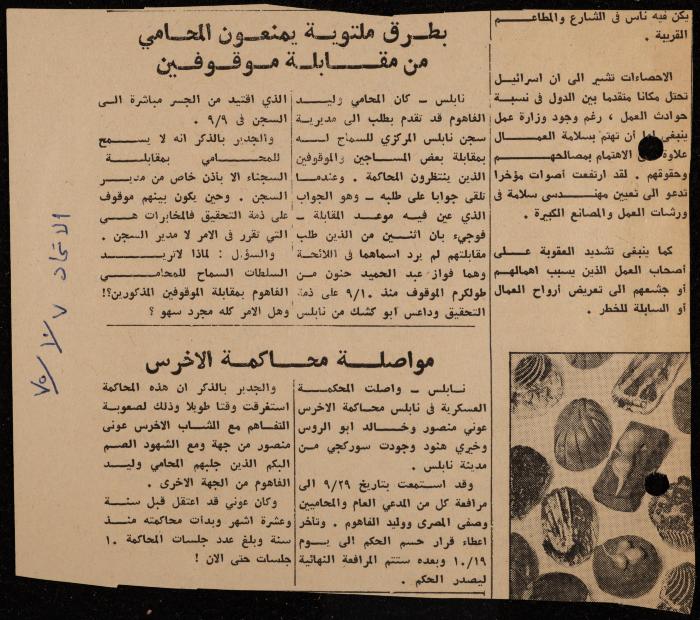 يكن فيه ناس في الشارع والمطاعم
القريبة .
الاحصاءات تشير الى ان اسرائيل
تحتل مكانا متقدما بين الدول في نسبة
حوادث العمل ، رغم وجود وزارة عمل
ينبغي لها أن تهتم بسلامة العمال
علاوة على الاهتمام بمصالحهم
وحقوقهم . لقد ارتفعت أصوات مؤخرا
تدعو الى تعيين مهندسي سلامة في
ورشات العمل والمصانع الكبيرة .
كما ينبغي تشديد العقوبة على
أصحاب العمل الذين يسبب اهمالهم
أو جشعهم الى تعريض أرواح العمال
أو السابلة للخطر .
بطرق ملتوية يمنعون المحامي
من مقابلة موقوفين
نابلس ــ كان المحامي وليد
الفاهوم قد تقدم بطلب الى مديرية
سجن نابلس المركزي للسماح له
بمقابلة بعض المساجين والموقوفين
الذين ينتظرون المحاكمة . وعندما
تلقى جوابا على طلبه ــ وهو الجواب
الذي عين فيه موعد المقابلة ــ
فوجيء بان اثنين من الذين طلب
مقابلتهم لم يرد اسماهما في اللائحة
وهما فواز عبد الحميد حنون من
طولكرم الموقوف منذ ٩/١٠ على ذمة
التحقيق وداعس ابو كشك من نابلس
الذي اقتيد من الجسر مباشرة الى
السجن في ٩/٩ .
والجدير بالذكر انه لا يسمح
للمحامي بمقابلة
السجناء الا باذن خاص من مدير
السجن . وحين يكون بينهم موقوف
على ذمة التحقيق فالمخابرات هي
التي تقرر في الامر لا مدير السجن .
والسؤال : لماذا لا تريد
السلطات السماح للمحامي
الفاهوم بمقابلة الموقوفين المذكورين؟!
وهل الامر كله مجرد سهو ؟
مواصلة محاكمة الاخرس
نابلس ــ واصلت المحكمة
العسكرية في نابلس محاكمة الاخرس
عوني منصور وخالد ابو الروس
وخيري هنود وجودت سوركجي من
مدينة نابلس .
وقد استمعت بتاريخ ٩/٢٩ الى
مرافعة كل من المدعي العام والمحاميين
وصفي المصري ووليد الفاهوم . وتأخر
اعطاء قرار حسم الحكم الى يوم
١٠/١٩ وبعده ستتم المرافعة النهائية
ليصدر الحكم .
والجدير بالذكر ان هذه المحاكمة
استغرقت وقتا طويلا وذلك لصعوبة
التفاهم مع الشاب الاخرس عوني
منصور من جهة ومع الشهود الصم
البكم الذين جلبهم المحامي وليد
الفاهوم من الجهة الاخرى .
وكان عوني قد اعتقل قبل سنة
وعشرة اشهر وبدأت محاكمته منذ
سنة وبلغ عدد جلسات المحاكمة ١٠
جلسات حتى الان !
الاتحاد ٧/١٠/٧٥